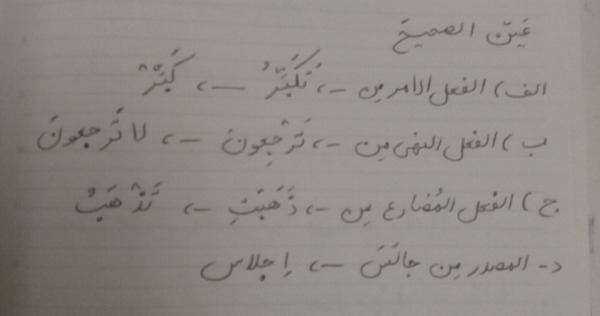 عَيّن الصحيحَ
الف) الفعل الامر مِن «تُكَبِّرُ» ← كَبِّرْ
ب) الفعل النهی مِن «تَرْجِعونَ» ← لا تَرجعونَ
ج) الفعل المُضارع مِن «ذَهَبْتِ» ← تَذْهَبُ
د- المصدر مِن جالَسَ ← إجلاس